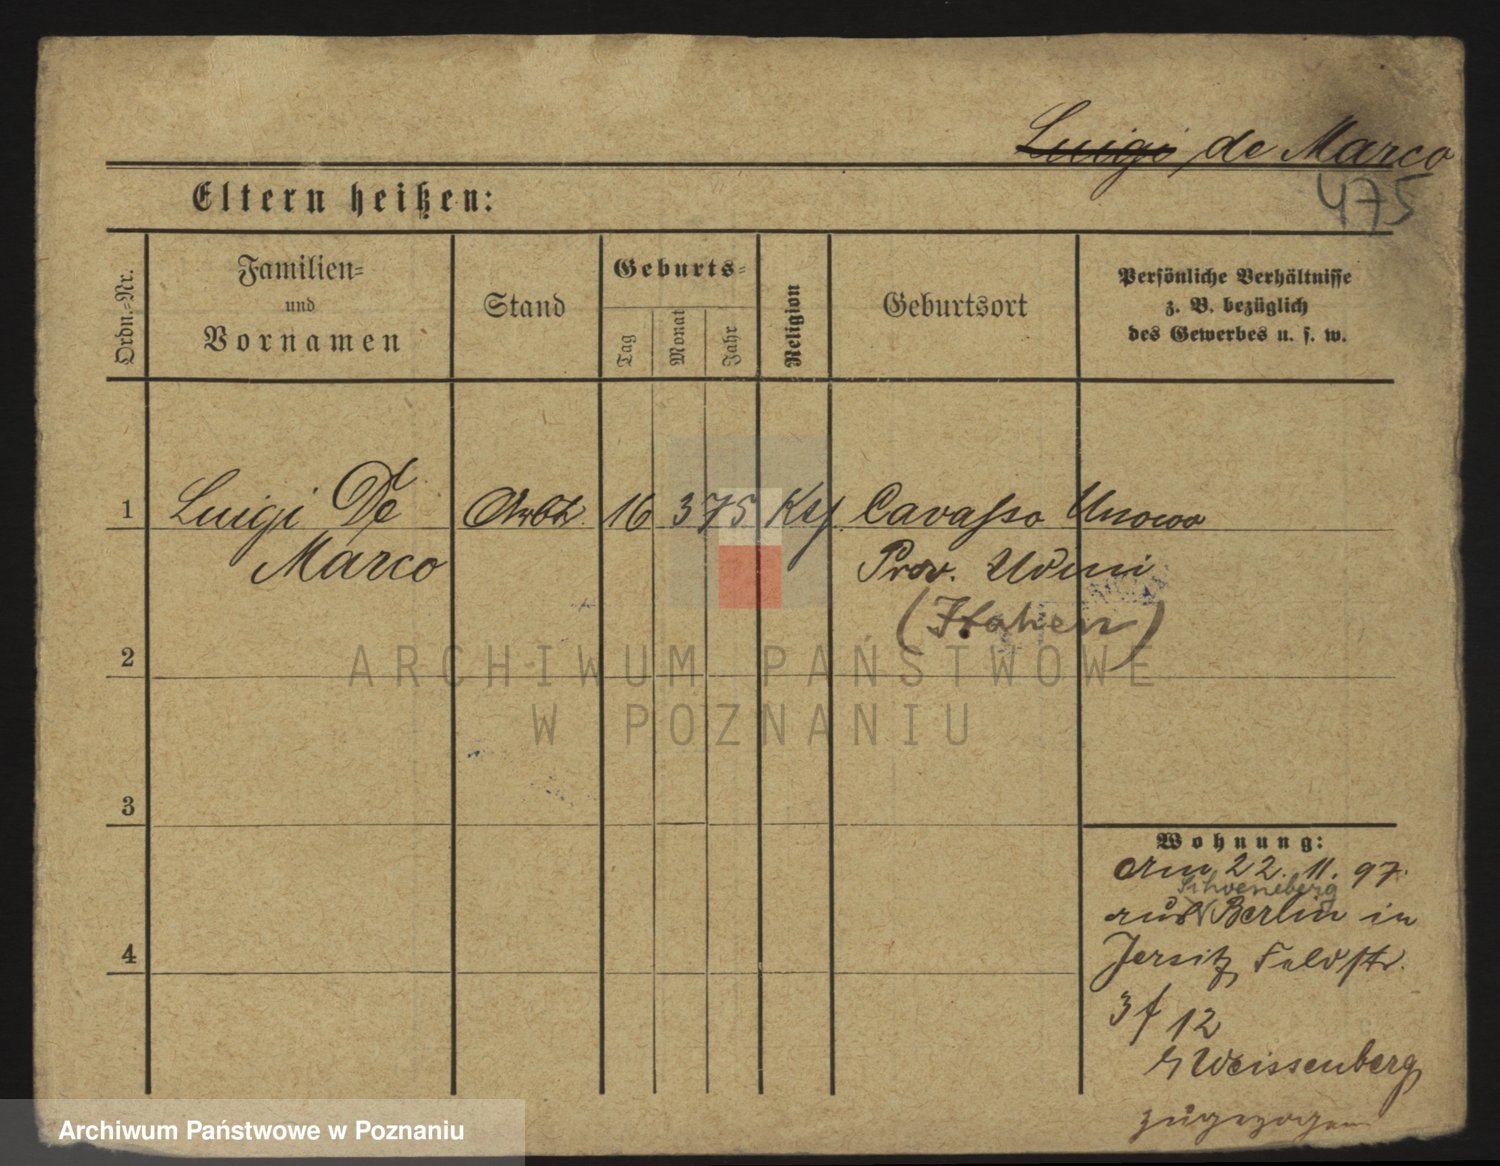 Luigi de Marco
475
Eltern heißen:
Ordn.-Nr.
Familien-
und
Vornamen
Stand
Geburts-
Tag
Monat
Jahr
Religion
Geburtsort
Persönliche Verhältnisse
z. B. bezüglich
des Gewerbes u. s. w.
1 Luigi De 16 3 75 Cavasso Unowo
Marco Prov. Udini
(Italien)
2
ARCHIWUM PAŃSTWOWE
W POZNANIU
3
Wohnung:
Am 22. 11. 97.
Schoeneberg
aus Berlin in
4
Jersitz Feldstr.
12
Weissenberg
zugezogen
Archiwum Państwowe w Poznaniu